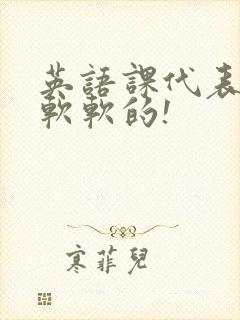 英語課代表
軟軟的!
寒菲兒